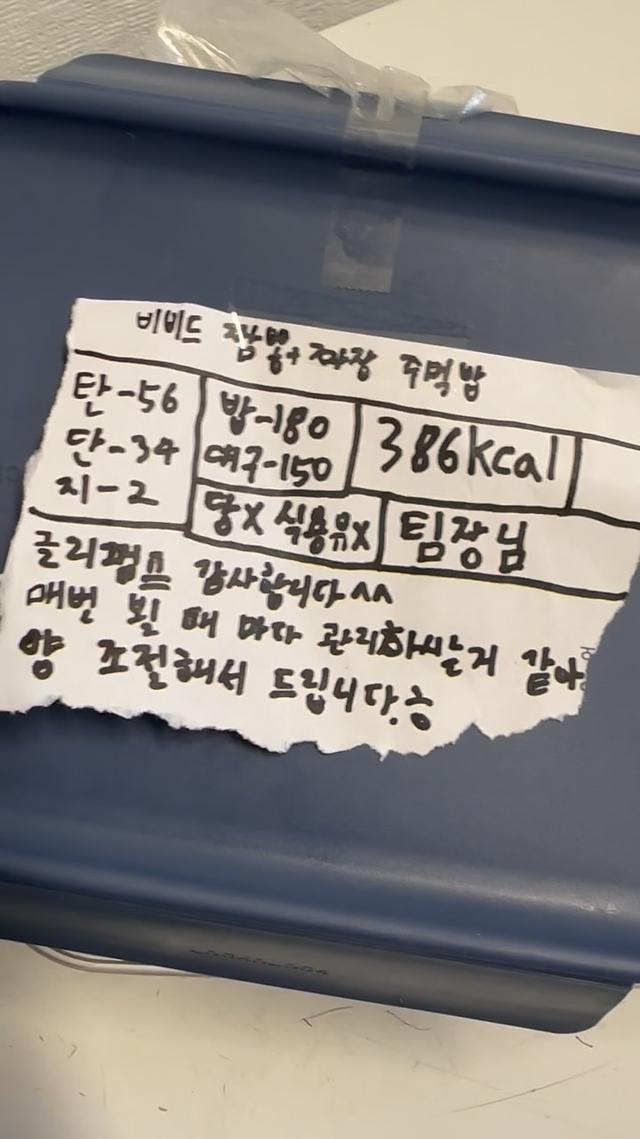 비비드 짬뽕+짜장 주먹밥
탄-56
단-34
지-2
밥-180
대구-150
386kcal
당x 식용유x
팀장님
글리펌프 감사합니다^^
매번 뵐 때 마다 관리하시는거 같아
양 조절해서 드립니다.ㅎ